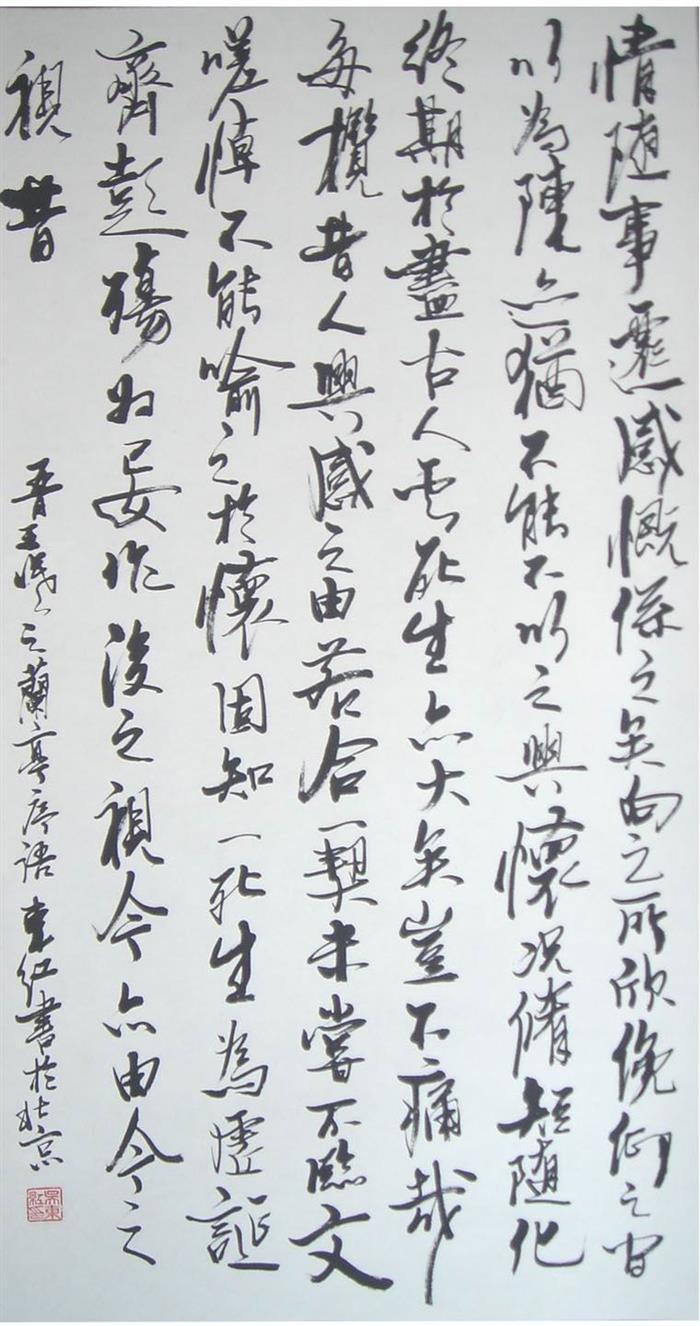 情随事遷感慨係之矣向之所欣俛仰之間
以為陳迹猶不能不以之興懷況脩短随化
終期於盡古人云死生亦大矣豈不痛哉
每攬昔人興感之由若合一契未嘗不臨文
嗟悼不能喻之於懷固知一死生為虛誕
齊彭殤為妄作後之視今亦由今之
視昔
晋王羲之蘭亭序語東紅書於北京
吳東紅印